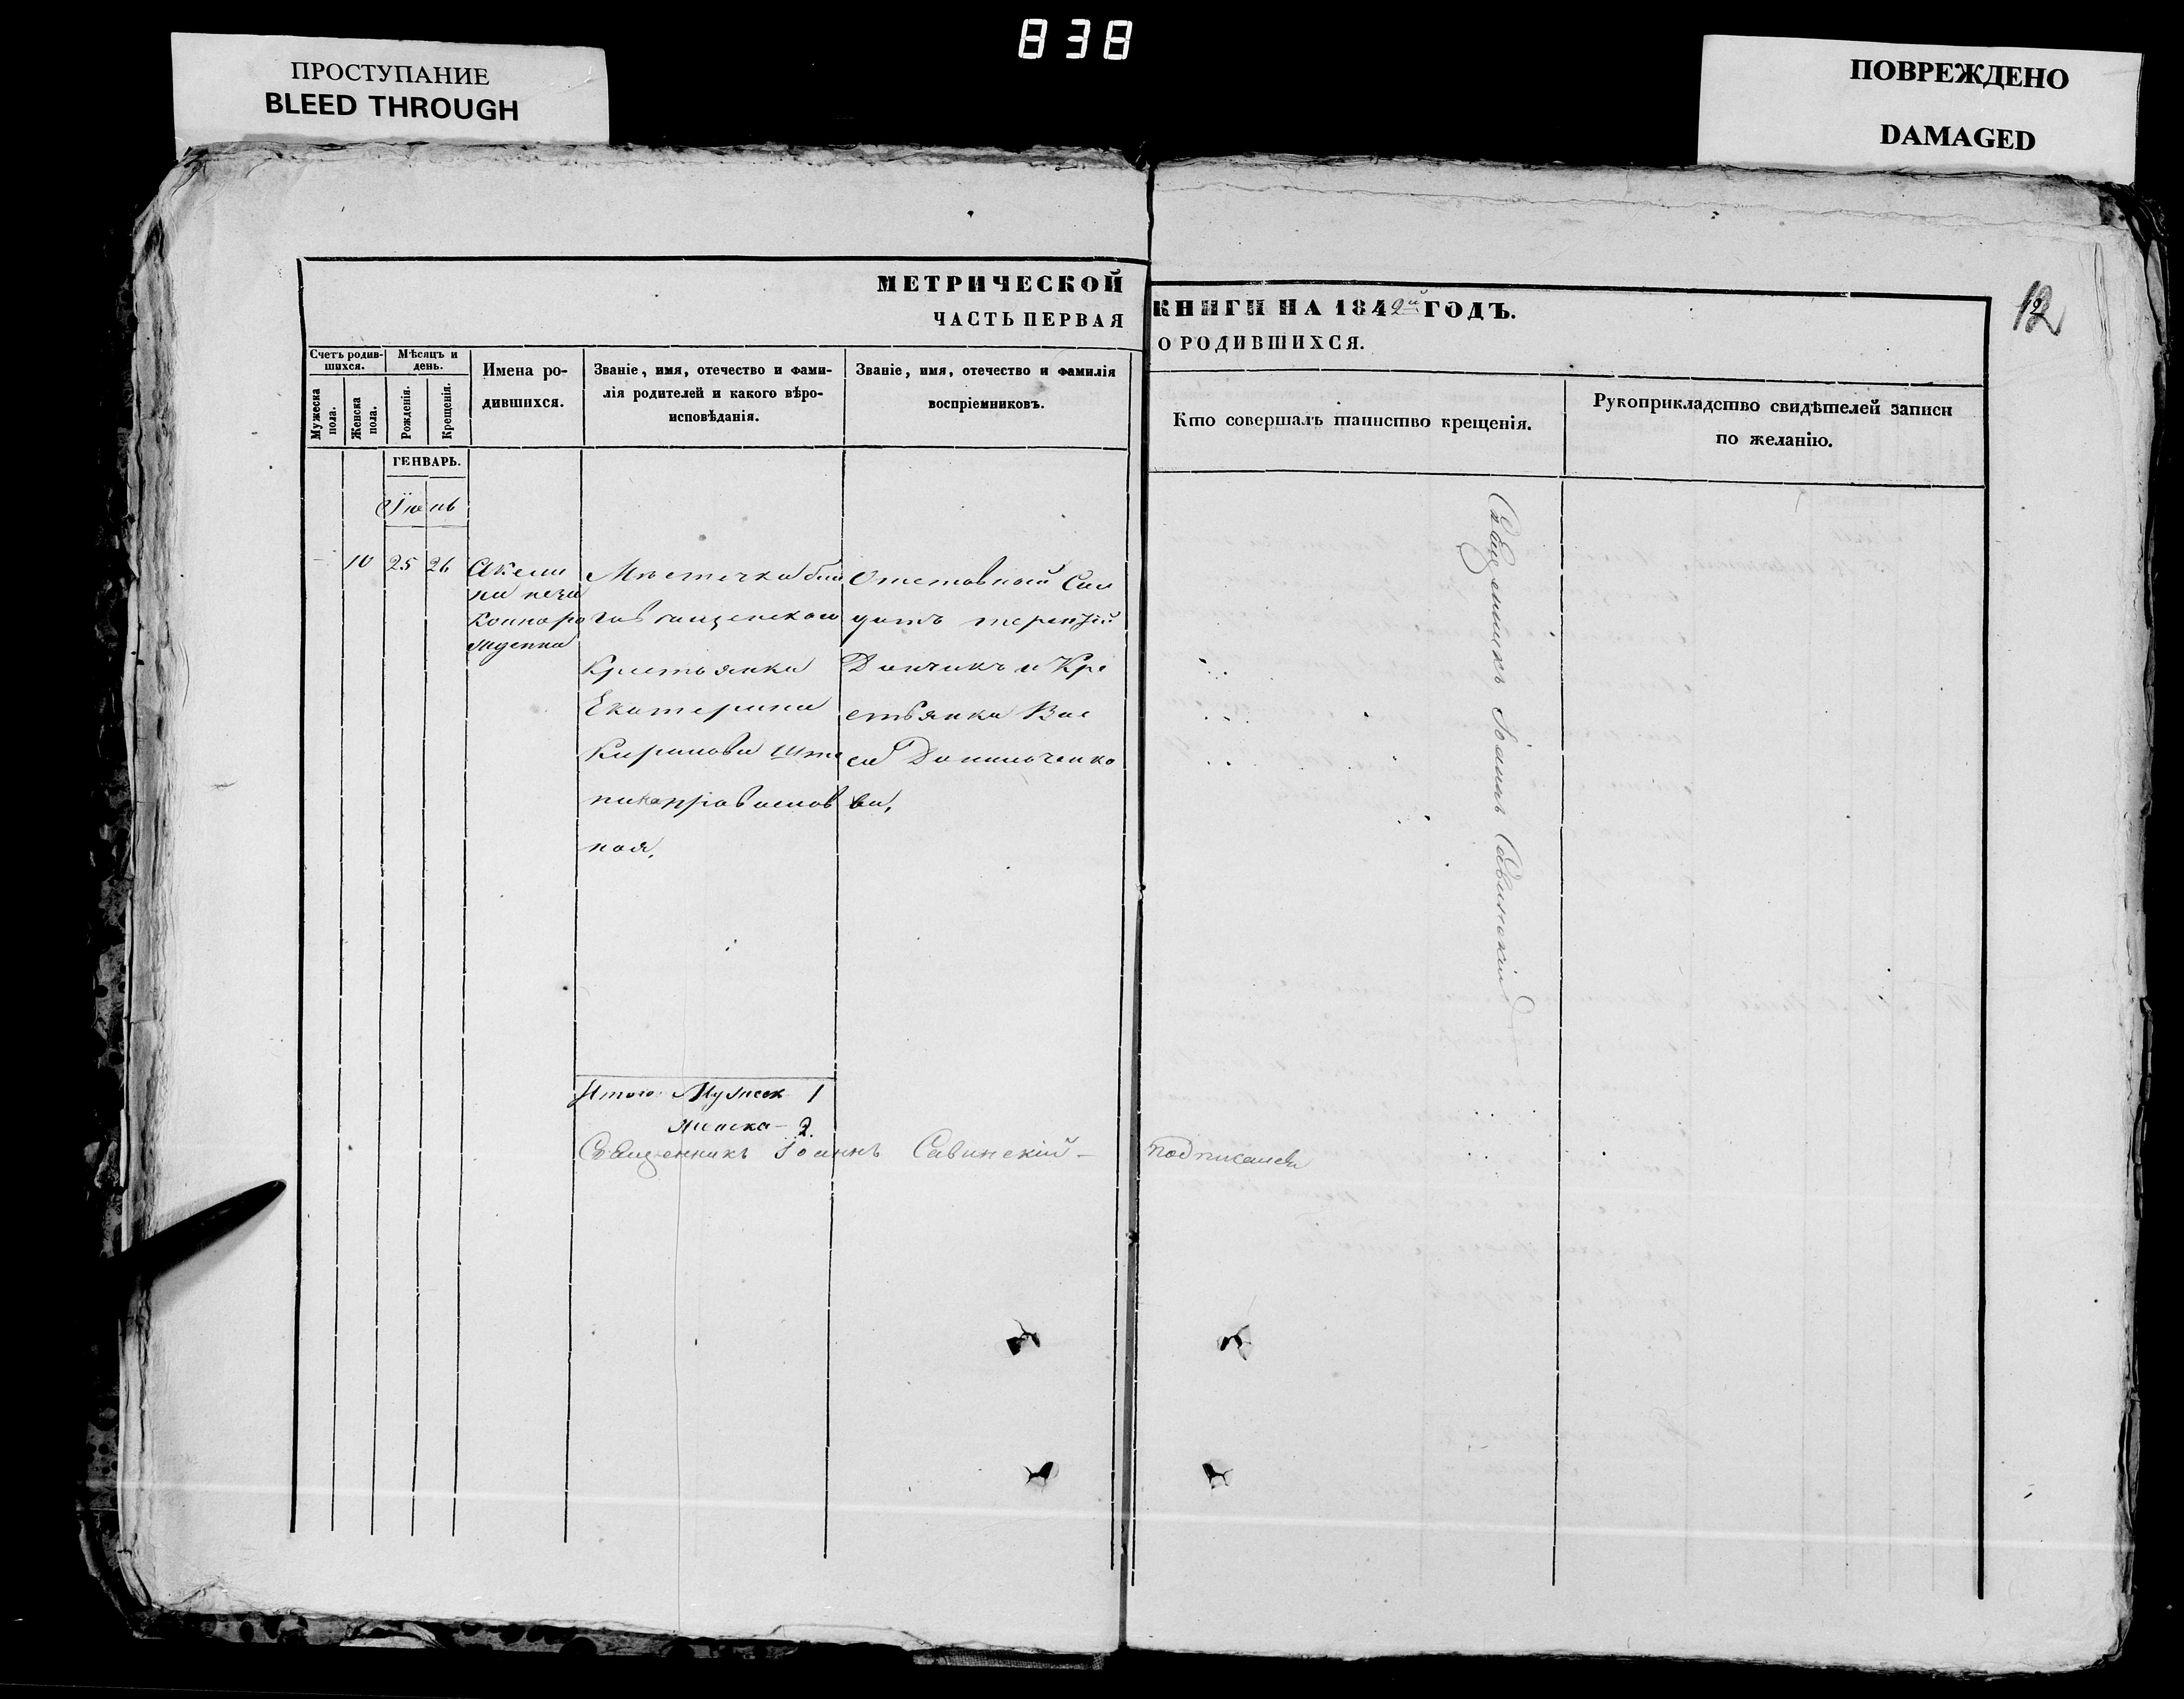 838
ПРОСТУПАНИЕ
BLEED THROUGH
ПОВРЕЖДЕНО
DAMAGED
12
МЕТРИЧЕСКОЙ КНИГИ НА 1842й ГОДЪ.
ЧАСТЬ ПЕРВАЯ О РОДИВШИХСЯ.
Счетъ родив-
шихся.
Мужеска
пола.
Женска
пола.
Мѣсяцъ и
день.
Рожденія.
Крещенія.
Имена ро-
дившихся.
Званіе, имя, отечество и фами-
лія родителей и какого вѣро-
исповѣданія.
Званіе, имя, отечество и фамилія
воспріемниковъ.
Кто совершалъ таинство крещенія.
Рукоприкладство свидѣтелей записи
по желанію.
ГЕНВАРЬ.
Іюнь
10 25 26
Мѣстечка
Крестьянка
Екатерина
Кирилова
православ
ная,
Отставной Сол
датъ Терентій
и Кре
стьянка Вас
са Данильченко
ва,
Священникъ Іоаннъ Савинскій
Итого: Мужеск 1
женска - 2.
Священникъ Іоаннъ Савинскій - подписался